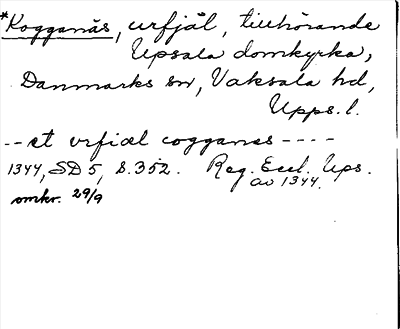 *Kogganäs, urfjäl, tillhörande
Upsala domkyrka,
Danmarks sn, Vaksala hd,
Upps. l.
-- et vrfiæl cogganes ----
1344, SD 5, S. 352. Reg. Eccl. Ups.
av 1344.
omkr. 29/9